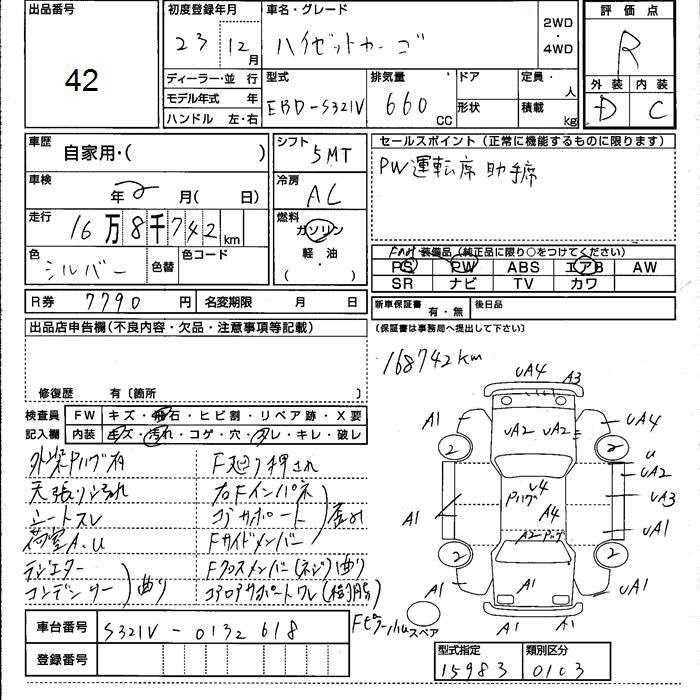 出品番号
42
初度登録年月
23 12月
車名・グレード
ハイゼットカーゴ
2WD
・
4WD
評価点
R
ディーラー・並 行
モデル年式 年
ハンドル 左・右
型式
EBD-S321V
排気量
660 CC
ドア
形状
定員・ 人
積載 kg
外装 内装
D C
車歴
自家用・( )
シフト
5MT
セールスポイント(正常に機能するものに限ります)
PW運転席助手席
車検
年 月( 日)
冷房
AC
走行
16万8千742km
燃料
ガソリン
軽・油
( ・ )
色
シルバー
色替
色コード
装備品(純正品に限り○をつけてください)
PS PW ABS エアB AW
SR ナビ TV カワ
R券 7790円
名変期限 月 日
新車保証書 有・無
後日品
(保証書は事務局へ提出して下さい)
出品店申告欄(不良内容・欠品・注意事項等記載)
修復歴 有〔箇所 〕
168742km
検査員
記入欄
FW キズ・飛石・ヒビ割・リペア跡・X要
内装 キズ・汚れ・コゲ・穴・スレ・キレ・破レ
外装Pハゲ有
天張り汚れ
シートスレ
荷室A.U
ラジエター
コンデンサー
曲り
F廻り押され
右Fインパネ
コアサポート
Fサイドメンバー
Fクロスメンバー(ネジ)曲り
コアロアサポートワレ(樹脂)
UA4
A3
A1
UA2
UA2
UA4
2
2
U
UA2
U4
Pハゲ
UA3
A1
A4
UA1
A2
2
2
A1
A1
UA1
A1
A1
スペア
車台番号
S321V-0132618
登録番号
型式指定
15983
類別区分
0103